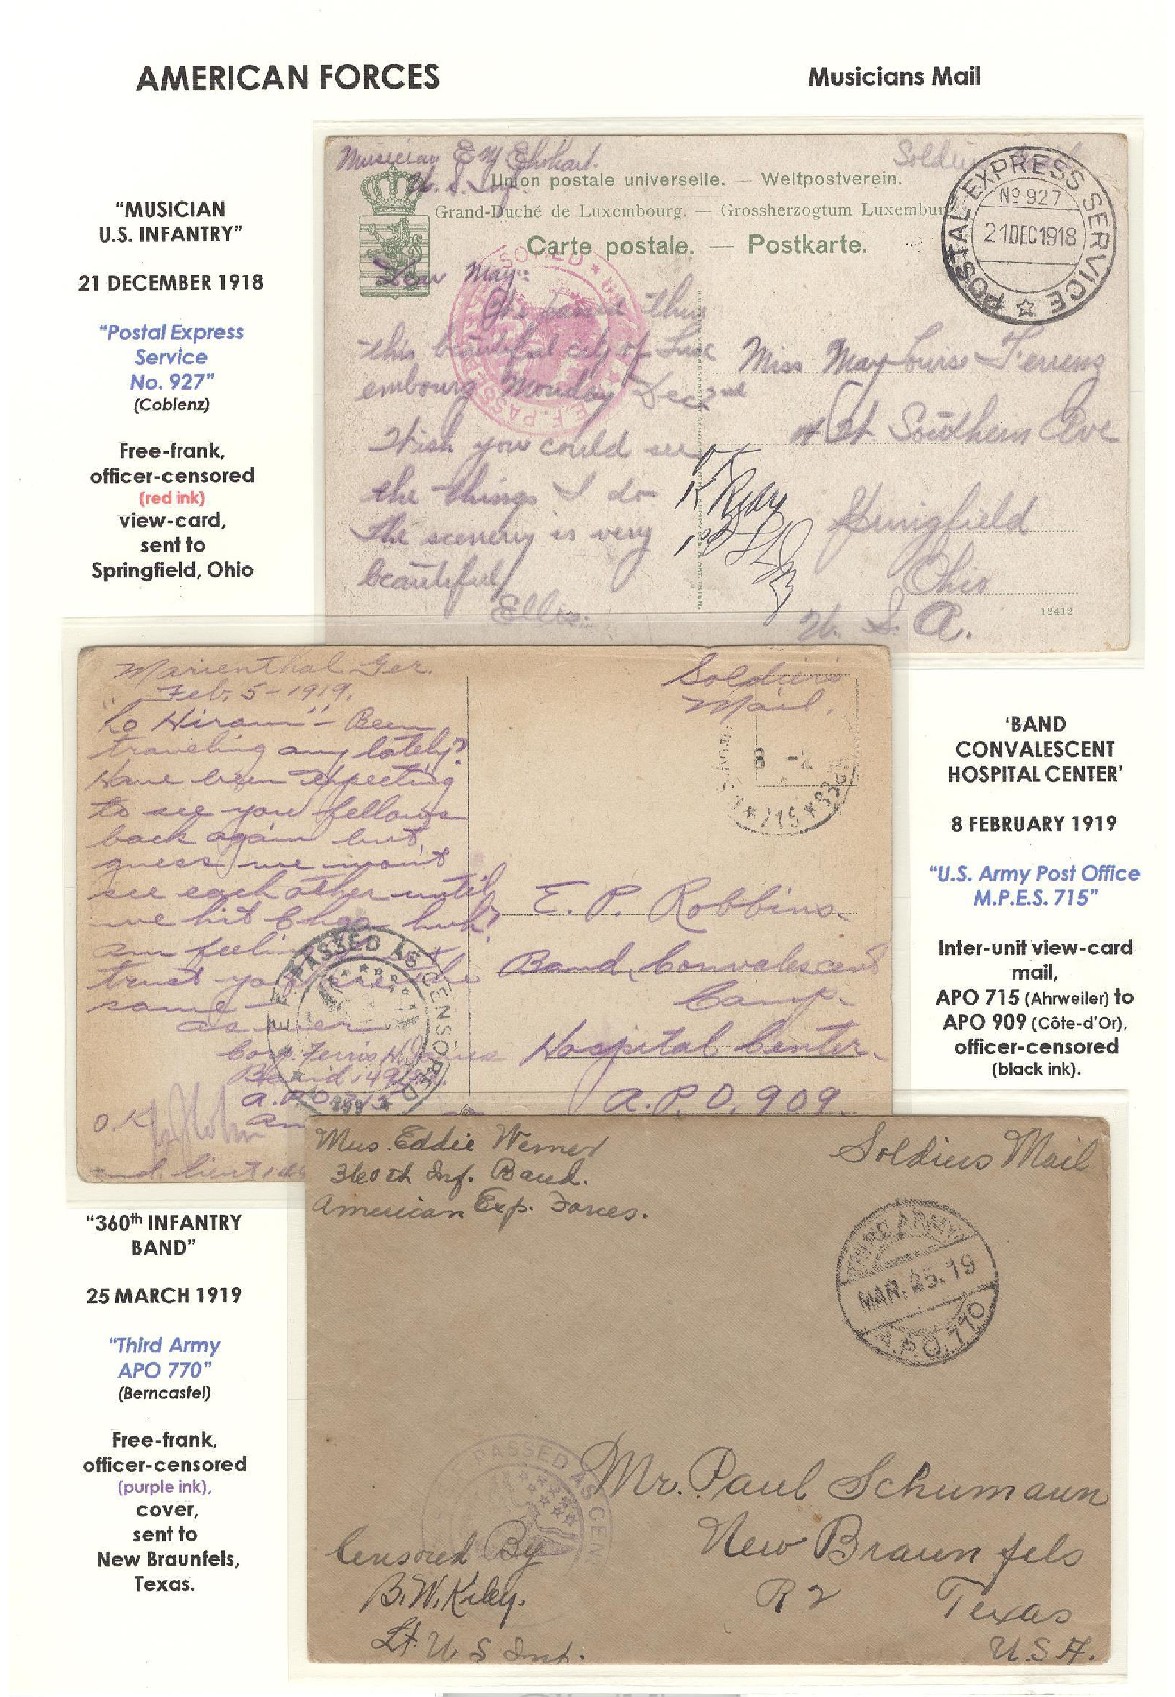 AMERICAN FORCES
Musicians Mail
"MUSICIAN
U.S. INFANTRY"
21 DECEMBER 1918
"Postal Express
Service
No. 927"
(Coblenz)
Free-frank,
officer-censored
(red ink)
view-card,
sent to
Springfield, Ohio
Musician E
U. S. Inf.
Union postale universelle. — Weltpostverein.
Grand-Duché de Luxembourg. — Grossherzogtum Luxembur
Carte postale. — Postkarte.
POSTAL EXPRESS SERVICE
No 927
21DEC1918
Dear May:
this beautiful city of Lux
embourg Monday Dec 2nd
Wish you could see
the things I do
the scenery is very
beautiful
Ellis.
Miss May Louise
Southern Ave
Springfield
Ohio
U. S. A.
12412
'BAND
CONVALESCENT
HOSPITAL CENTER'
8 FEBRUARY 1919
"U.S. Army Post Office
M.P.E.S. 715"
Inter-unit view-card
mail,
APO 715 (Ahrweiler) to
APO 909 (Côte-d'Or),
officer-censored
(black ink).
Marienthal Ger.
Feb. 5-1919.
"Lo Hiram"- Been
traveling any lately?
Have been expecting
to see you fellows
back again but,
guess we won't
see each other until
we hit Chgo. huh?
am feeling
trust you are the
same
as ever
Band 149
A.P.O. 715
O.K.
Soldiers
Mail.
8
* 715 *
E. P. Robbins
Band Convalescent
Camp.
Hospital Center.
A.P.O. 909.
E.F. PASSED AS CENSORED
"360th INFANTRY
BAND"
25 MARCH 1919
"Third Army
APO 770"
(Berncastel)
Free-frank,
officer-censored
(purple ink),
cover,
sent to
New Braunfels,
Texas.
Mus. Eddie Werner
360th Inf. Band.
American Exp. Forces.
Soldiers Mail
THIRD ARMY
MAR. 25. 19
A.P.O. 770
PASSED AS CEN
Mr. Paul Schumann
New Braunfels
R 2 Texas
U.S.A.
Censored By
B.W. Kiley.
Lt. U S Inf.